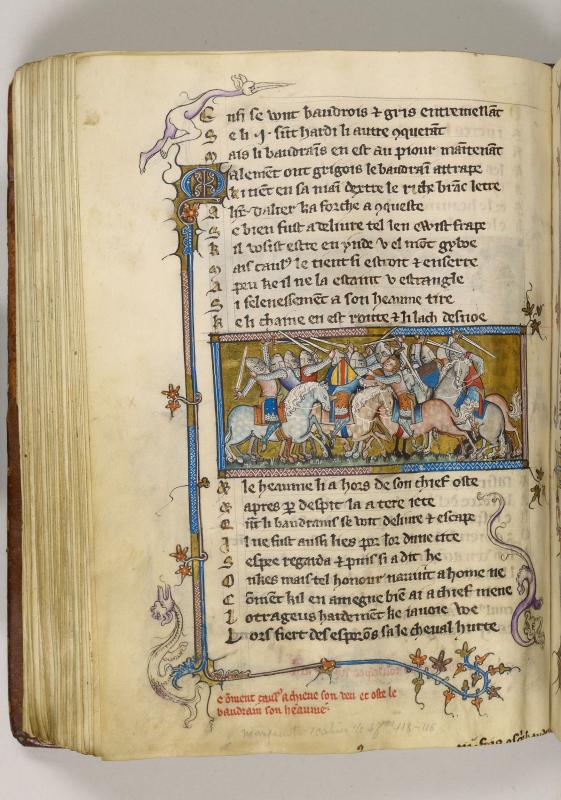 Ensi se vont baudrois ⁊ gris entremellāt
S e li .i. sūt hardi li autre ꝯquerāt
M ais li baudraīs en est au piour maītenāt
Malemēt ont grigois le baudraī attrape
K i tiēt en sa maī dextre le riche
A
S e bien fust a deliure tel len ewist frape
K il vosist estre en ynde v el mōt gybve
M ais caulꝰ le tient si estroit ⁊ enserre
A peu ke il ne la estaint v estrangle
S i felenessemēt a son heaume tire
K e li chaine en est route ⁊ li lach desnoe
le heaume li a hors de son chief oste
apres ꝑ despit la a tere iete
li baudraīs se voit deliure ⁊ escape
I l ne fust aussi lies por lor dune cite
S espee regarda ⁊ puis si a dit he
O nkes mais tel honour nauint a home ne
C ōment kil en amegne biē ai a chief mene
L otrageus hardemēt ke iauoie we
L ors fiert des esperōs sa le cheual hurte
cōment caulꝰ achieue son veu et oste le
baudrain son heaume